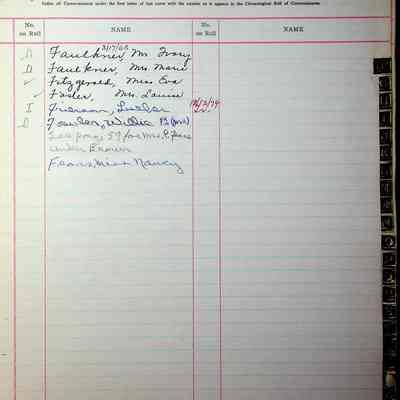 Index all Communicants under the first letter of last name with the number as it appears in the Chronological Roll of Communicants.
No. on Roll NAME No. on Roll NAME
3/17/68
D Faulkner, Mr. Ivory
D Faulkner, Mrs. Marie
✓ Fitzgerald, Miss Eva
✓ Foster, Mrs. Louise
I Frierson, Luther
D Fowler, Willie
See page 57 for Mrs.
under Brown
Fears, Miss Nancy